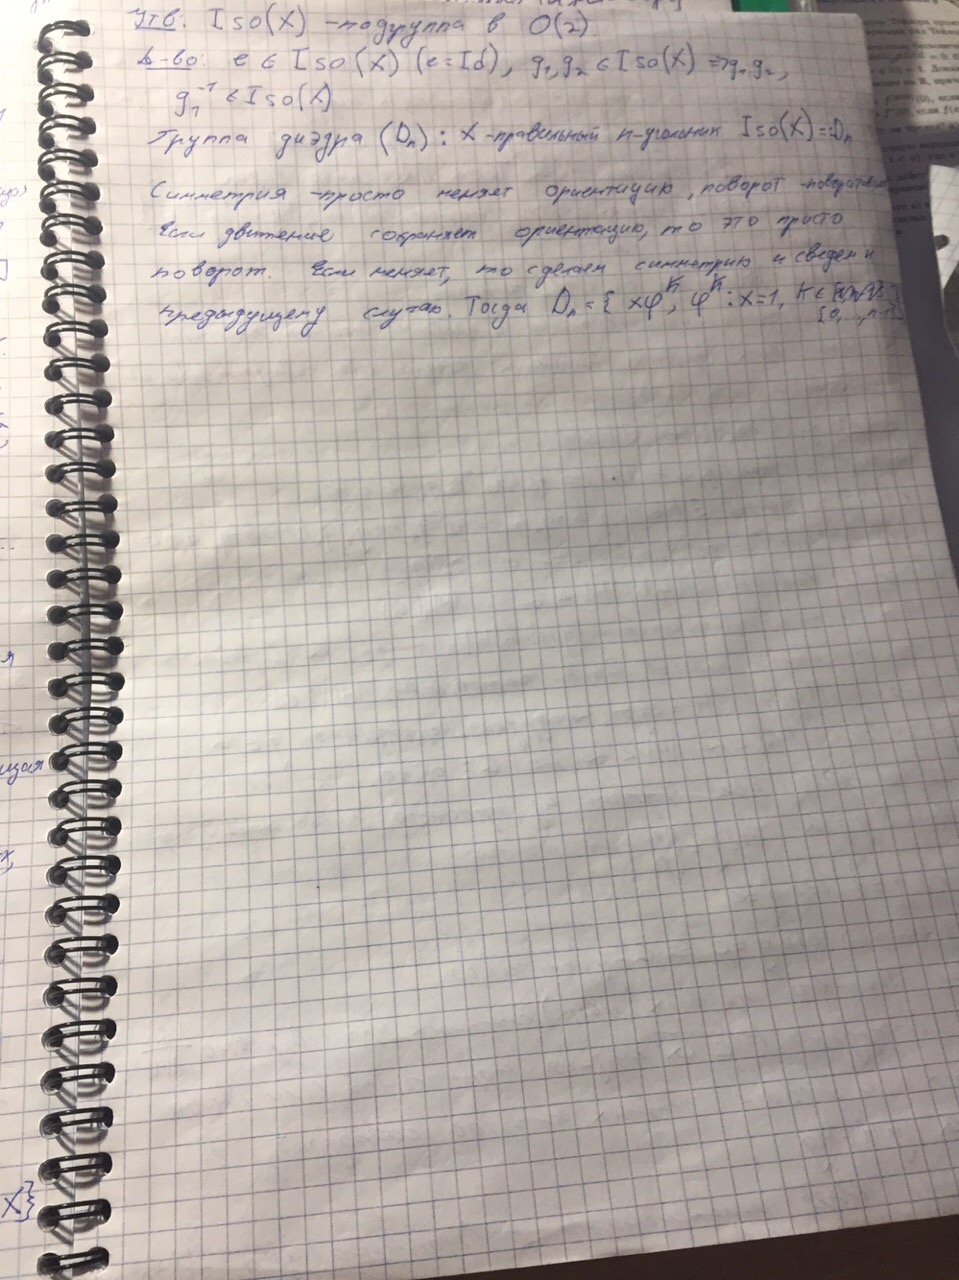 Утв. Iso(X) - подгруппа в O(2).
Д-во: e ∈ Iso(X) (e=Id), g₁,g₂ ∈ Iso(X) ⇒ g₁g₂,
g₁⁻¹ ∈ Iso(X)
Группа диэдра (Dₙ): X - правильный n-угольник Iso(X)=:Dₙ
Симметрия - просто меняет ориентацию, поворот -
Если движение сохраняет ориентацию, то это просто
поворот. Если меняет, то сделаем симметрию и сведем к
предыдущему случаю. Тогда Dₙ = { xφᵏ, φᵏ : x=1, k ∈
{0,...,n-1}
X}